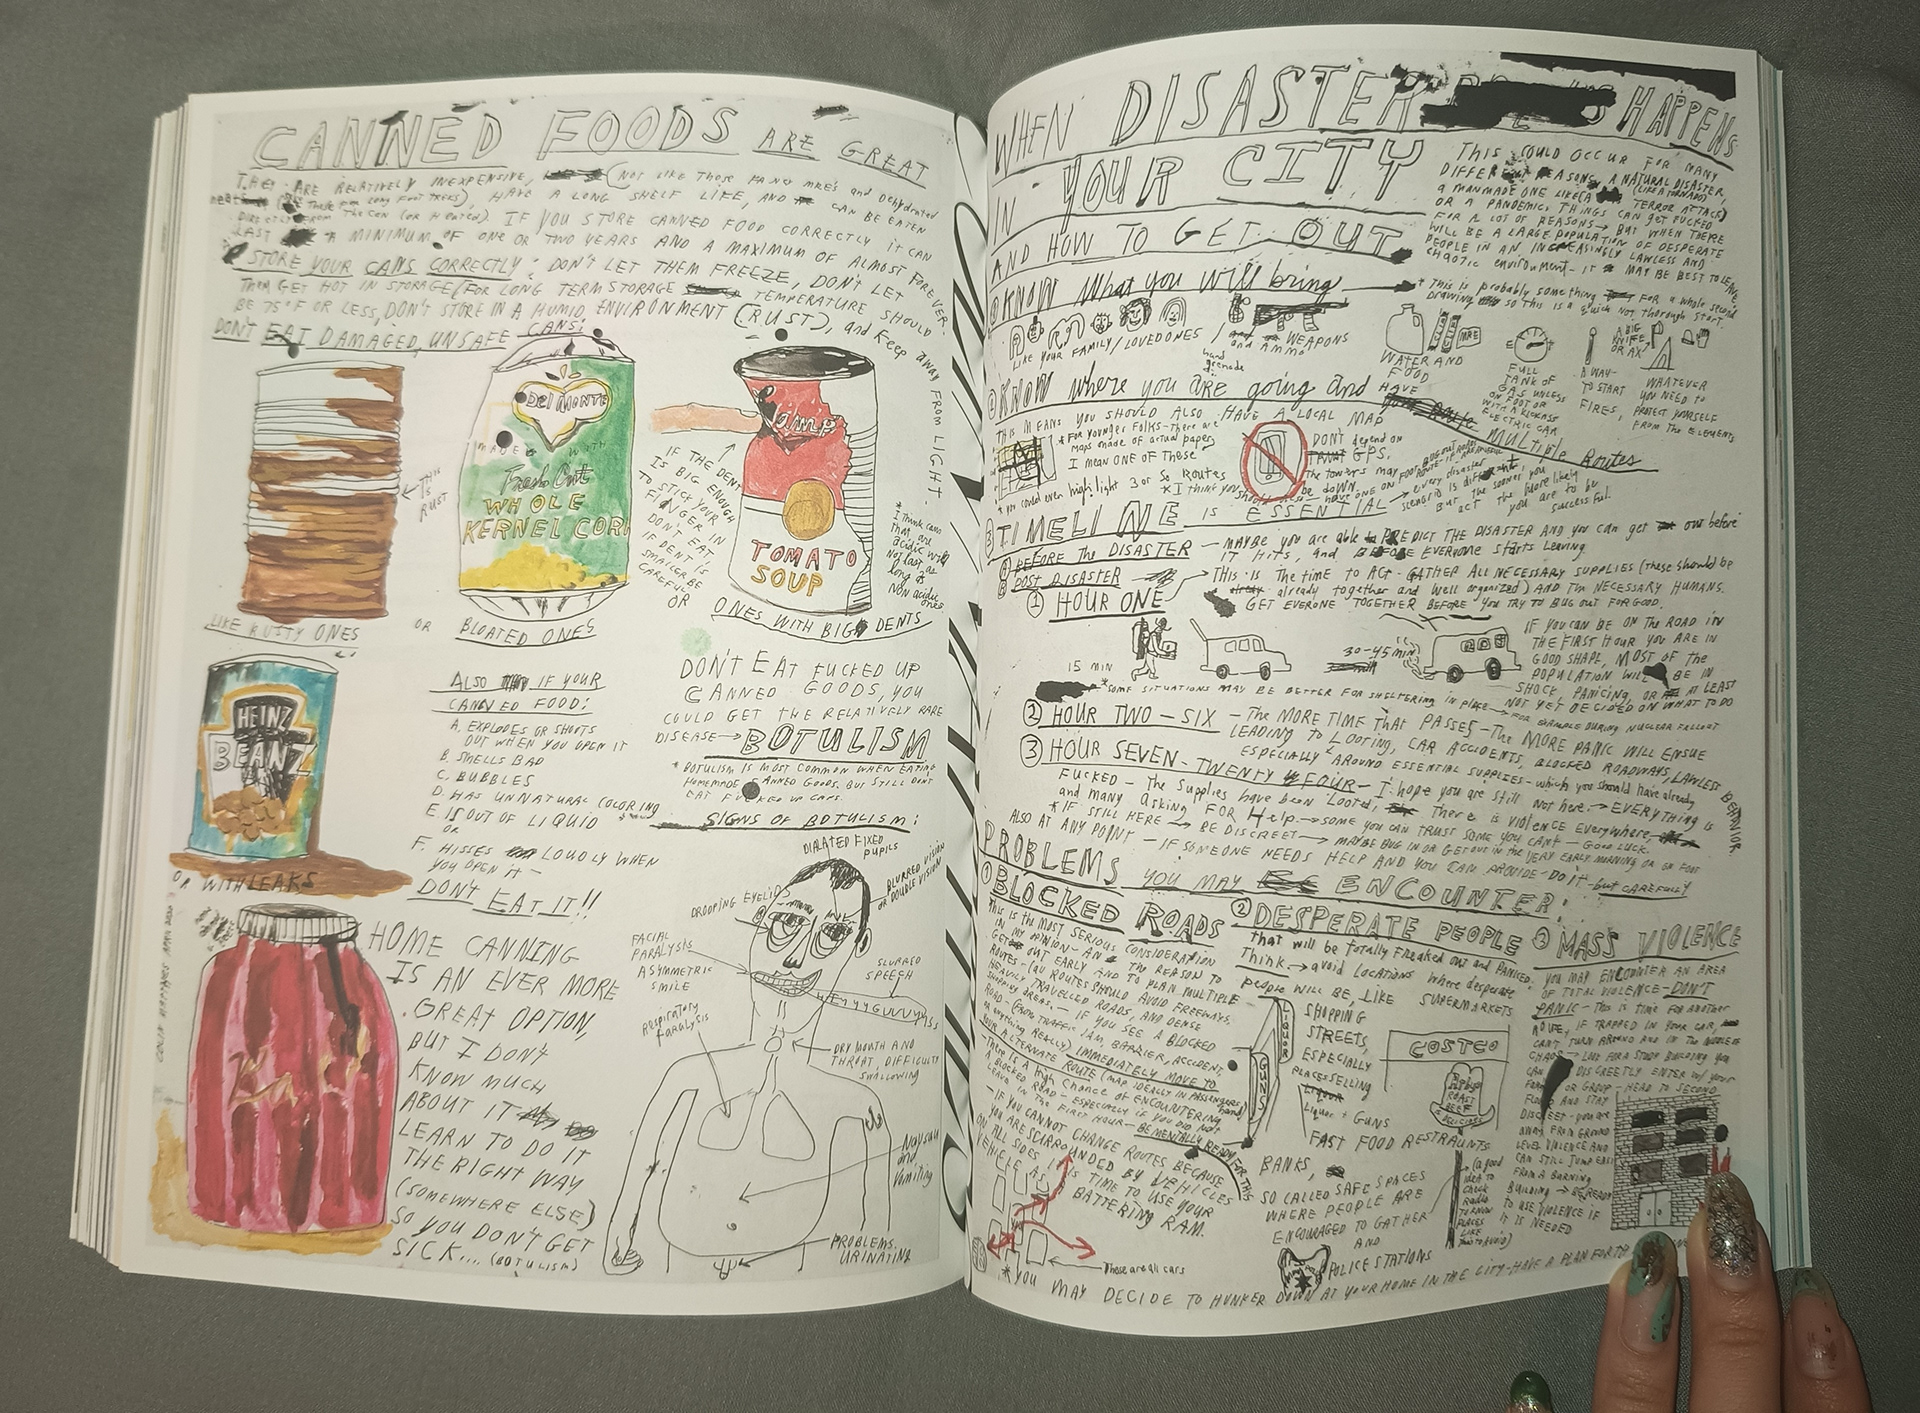 CANNED FOODS ARE GREAT
THEY ARE RELATIVELY INEXPENSIVE, (NOT LIKE THOSE FANCY MRE'S and DEHYDRATED
meats), HAVE A LONG SHELF LIFE, AND CAN BE EATEN
DIRECTLY FROM THE CAN (OR HEATED). IF YOU STORE CANNED FOOD CORRECTLY IT CAN
LAST A MINIMUM OF ONE OR TWO YEARS AND A MAXIMUM OF ALMOST FOREVER.
STORE YOUR CANS CORRECTLY: DON'T LET THEM FREEZE, DON'T LET
THEM GET HOT IN STORAGE (FOR LONG TERM STORAGE TEMPERATURE SHOULD
BE 75°F OR LESS, DON'T STORE IN A HUMID ENVIRONMENT (RUST), and KEEP AWAY FROM LIGHT.
DON'T EAT DAMAGED, UNSAFE CANS:
THIS IS RUST
LIKE RUSTY ONES
OR
DEL MONTE
MADE WITH
Fresh Cut
WHOLE
KERNEL CORN
BLOATED ONES
IF THE DENT
IS BIG ENOUGH
TO STICK YOUR
FINGER IN
DON'T EAT
IF DENT IS
SMALLER BE
CAREFUL
OR
Camp
TOMATO
SOUP
ONES WITH BIG DENTS
*I think cans
that are
acidic will
not last as
long as
NON acidic
ones
HEINZ
BEANZ
OR WITH LEAKS
ALSO IF YOUR
CANNED FOOD:
A. EXPLODES OR SHOOTS
OUT WHEN YOU OPEN IT
B. SMELLS BAD
C. BUBBLES
D. HAS UNNATURAL COLORING
E. IS OUT OF LIQUID
OR
F. HISSES LOUDLY WHEN
YOU OPEN IT -
DON'T EAT IT!!
DON'T EAT FUCKED UP
CANNED GOODS, YOU
COULD GET THE RELATIVELY RARE
DISEASE → BOTULISM
*BOTULISM IS MOST COMMON WHEN EATING
HOMEMADE CANNED GOODS. BUT STILL DON'T
EAT FUCKED UP CANS.
SIGNS OF BOTULISM:
DIALATED FIXED
PUPILS
BLURRED VISION
OR DOUBLE VISION
DROOPING EYELIDS
FACIAL
PARALYSIS
ASYMMETRIC
SMILE
SLURRED
SPEECH
RESPIRATORY
PARALYSIS
DRY MOUTH AND
THROAT, DIFFICULTY
SWALLOWING
Nausea
and
Vomiting
PROBLEMS
URINATING
HOME CANNING
IS AN EVER MORE
GREAT OPTION,
BUT I DON'T
KNOW MUCH
ABOUT IT
LEARN TO DO IT
THE RIGHT WAY
(SOMEWHERE ELSE)
SO YOU DON'T GET
SICK... (BOTULISM)
WHEN DISASTER HAPPENS
IN YOUR CITY
AND HOW TO GET OUT
THIS COULD OCCUR FOR MANY
DIFFERENT REASONS, A NATURAL DISASTER,
a MANMADE ONE (LIKE A TERROR ATTACK)
OR A PANDEMIC. THINGS CAN GET FUCKED
FOR A LOT OF REASONS → BUT WHEN THERE
WILL BE A LARGE POPULATION OF DESPERATE
PEOPLE IN AN INCREASINGLY LAWLESS AND
CHAOTIC environment - IT MAY BE BEST TO LEAVE
① KNOW What you will bring →
*This is probably something FOR a whole second
Drawing so This is a quick not thorough start.
LIKE YOUR FAMILY/LOVED ONES
WEAPONS
and AMMO
hand
grenade
MRE
WATER AND
FOOD
FULL
TANK OF
GAS UNLESS
ON FOOT OR
WITH A KICKASS
ELECTRIC CAR
A WAY
TO START
FIRES,
A BIG
KNIFE
OR AX
WHATEVER
YOU NEED TO
PROTECT YOURSELF
FROM THE ELEMENTS
② KNOW where you are going and HAVE
Multiple Routes
THIS MEANS YOU SHOULD ALSO HAVE A LOCAL MAP
*For younger folks - there are
maps made of actual paper,
I mean ONE OF THESE
*you could even highlight 3 or so ROUTES
DON'T depend on
GPS.
The towers may
be down.
every disaster
scenario is different,
But the sooner you
act the more likely
you are to be
successful.
③ TIMELINE IS ESSENTIAL
Ⓐ BEFORE THE DISASTER - MAYBE YOU are able to PREDICT THE DISASTER AND you can get out before
IT HITS, and BEFORE EVERYONE starts Leaving
Ⓑ POST DISASTER
① HOUR ONE → THIS IS The time TO ACT - GATHER ALL NECESSARY SUPPLIES (these should be
already together and well organized) AND THE NECESSARY HUMANS.
GET EVERYONE TOGETHER BEFORE YOU TRY TO BUG OUT FOR GOOD.
15 MIN
30-45 min
IF YOU CAN BE ON THE ROAD IN
THE FIRST HOUR YOU ARE IN
GOOD SHAPE, MOST OF the
POPULATION WILL BE IN
SHOCK, PANICING, OR AT LEAST
NOT YET DECIDED ON WHAT TO DO
*SOME SITUATIONS MAY BE BETTER FOR SHELTERING in place → FOR EXAMPLE DURING NUCLEAR FALLOUT
② HOUR TWO - SIX - The MORE TIME THAT PASSES - The MORE PANIC WILL ENSUE
LEADING to LOOTING, CAR ACCIDENTS, BLOCKED ROADWAYS, LAWLESS BEHAVIOR
ESPECIALLY AROUND ESSENTIAL SUPPLIES - which you should have already
③ HOUR SEVEN - TWENTY FOUR - I hope you are still not here. → EVERYTHING IS
FUCKED - The supplies have been looted, There is violence everywhere
and many asking FOR Help. → some you can TRUST SOME YOU CAN'T - GOOD LUCK.
*IF STILL HERE → BE DISCREET → MAYBE BUG IN or GET OUT IN the VERY EARLY MORNING OR ON FOOT
ALSO AT ANY POINT - IF SOMEONE NEEDS HELP AND YOU CAN PROVIDE - DO IT - but CAREFULLY
PROBLEMS YOU MAY ENCOUNTER:
① BLOCKED ROADS
This is the MOST SERIOUS CONSIDERATION
IN MY OPINION - AN THE REASON TO
GET OUT EARLY AND TO PLAN MULTIPLE
ROUTES - (all ROUTES SHOULD AVOID FREEWAYS,
HEAVILY TRAVELLED ROADS, AND DENSE
SHOPPING AREAS. - IF YOU SEE A BLOCKED
ROAD - (FROM TRAFFIC JAM, BARRIER, ACCIDENT,
OR anything Really) IMMEDIATELY MOVE TO
YOUR ALTERNATE ROUTE (map ideally in PASSENGERS hand)
- There is a high Chance of ENCOUNTERING
A BLOCKED ROAD - ESPECIALLY if YOU DID NOT
LEAVE IN THE FIRST HOUR - BE MENTALLY READY FOR THIS
- IF YOU CANNOT CHANGE ROUTES BECAUSE
YOU ARE SURROUNDED BY VEHICLES
ON ALL SIDES IT IS TIME TO USE YOUR
VEHICLE AS A BATTERING RAM.
These are all cars
② DESPERATE PEOPLE
that will be totally freaked out and PANICED.
Think. → avoid locations where desperate
people will be, LIKE SUPERMARKETS
LIQUOR
GUNS
SHOPPING
STREETS,
ESPECIALLY
PLACES SELLING
Liquor + GUNS
COSTCO
ROAST
BEEF
FAST FOOD RESTRAUNTS
BANKS,
SO CALLED SAFE SPACES
WHERE PEOPLE ARE
ENCOURAGED TO GATHER
AND
POLICE STATIONS
(a good
idea to
check
Radio
TO KNOW
PLACES
LIKE
THIS TO AVOID)
③ MASS VIOLENCE
YOU MAY ENCOUNTER AN AREA
OF TOTAL VIOLENCE - DON'T
PANIC - This is time for another
ROUTE, IF TRAPPED IN YOUR CAR,
CAN'T TURN AROUND AND IN THE MIDDLE OF
CHAOS → LOOK FOR A STUDY BUILDING YOU
CAN DISCREETLY ENTER w/ your
OR GROUP - HEAD TO SECOND
FLOOR AND STAY
DISCREET - you are
AWAY FROM GROUND
LEVEL VIOLENCE AND
CAN STILL JUMP
FROM A BURNING
BUILDING → BE READY
TO USE VIOLENCE IF
IT IS NEEDED
*YOU MAY DECIDE TO HUNKER DOWN AT YOUR HOME IN THE CITY - HAVE A PLAN FOR